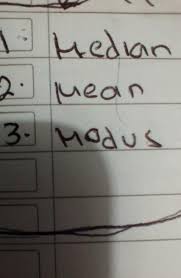 1. Median
2. Mean
3. Modus